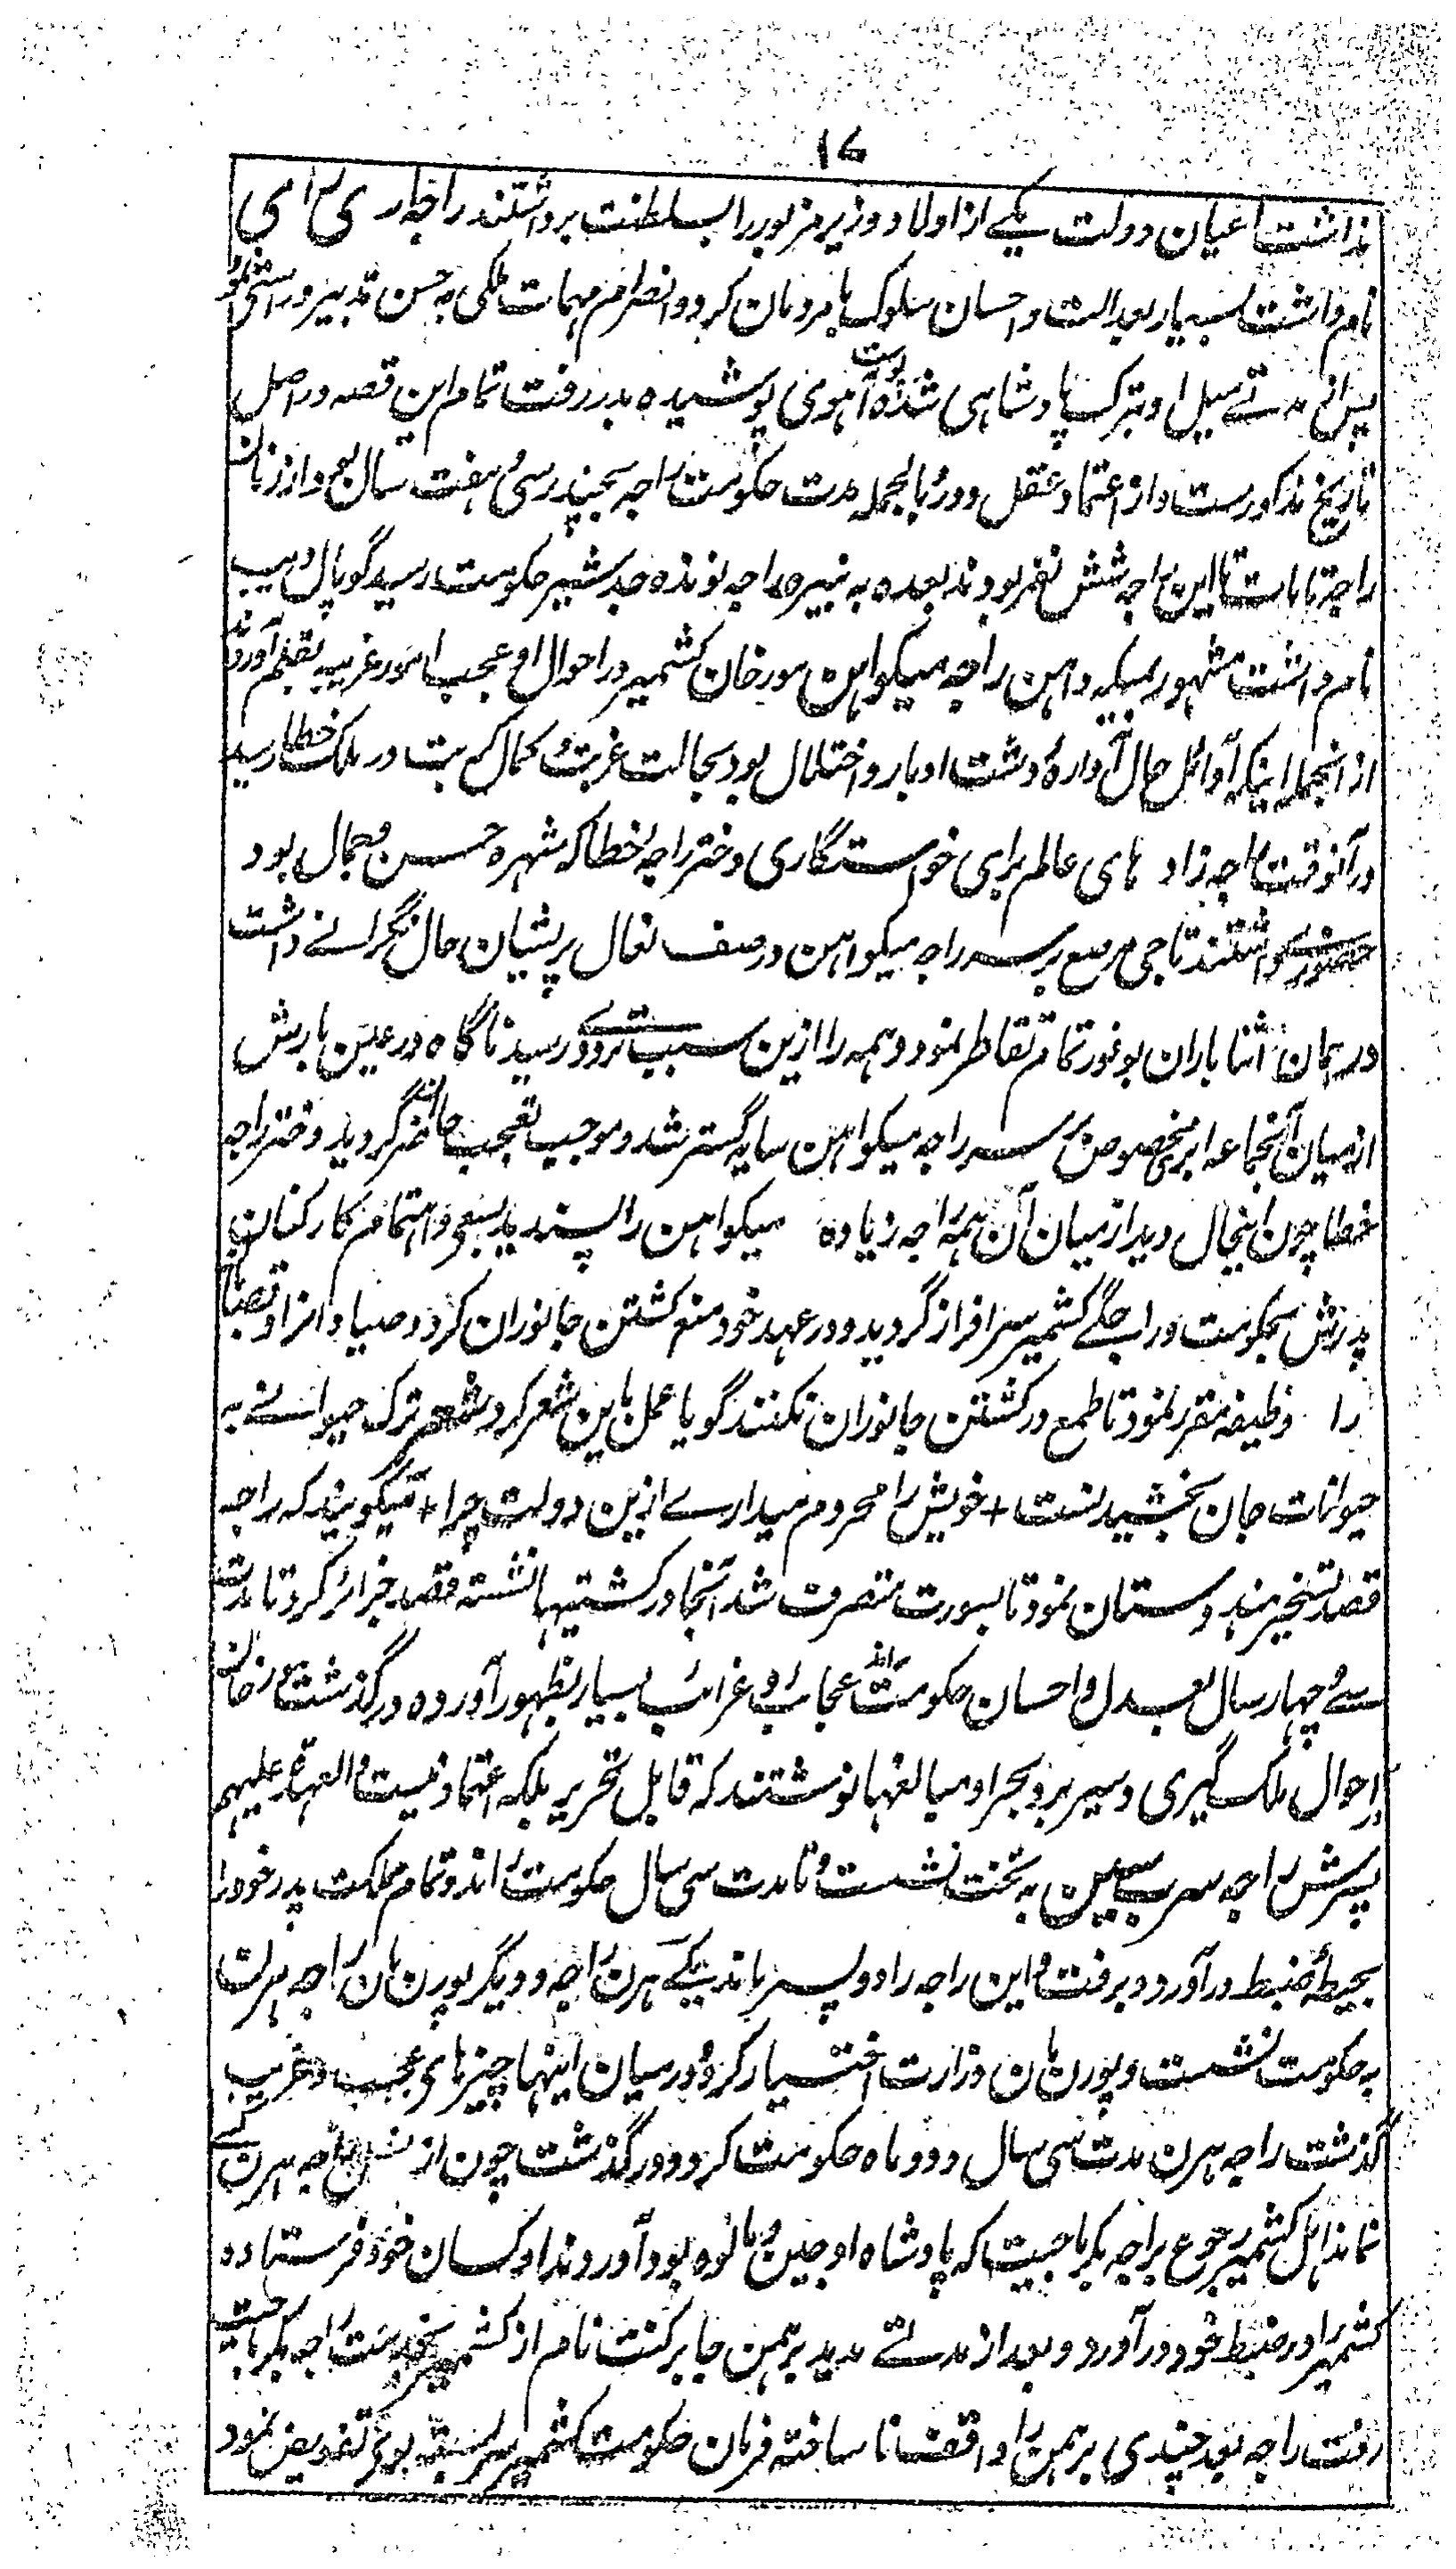 ۱۶
نداشت اعیان دولت یکے از اولاد وزیر مزبور را بسلطنت برداشتند راجه اری رای
نام داشت بسیار بعدالت و احسان سلوک با مردمان کرد و انصرام مهمات ملکی به حسن تدبیر و راستی نمود
پس از مدتے میل او بترک پادشاهی شده پوست آهوی پوشیده بدر رفت تمام این قصه در اصل
تاریخ مذکورست و از اعتماد عقل دور بالجمله مدت حکومت راجه سی و هفت سال بود از زمان
راجه تا این راجه شش نفر بودند بعده به نبیره راجه جدهشتر حکومت رسید گوپال دیب
نام داشت مشهور بمیکه داهن راجه میکواهن مورخان کشمیر در احوال او عجب امور غریبه بقلم آوردند
از انجمله اینکه اوائل حال آواره دشت ادبار و اختلال بود بحالت غربت و کمال کربت در ملک خطا رسید
در آنوقت راجه زاد های عالم برای خواستگاری دختر راجه خطا که شهره حسن و جمال بود
حضور داشتند تاجی مرصع بر سر راجه میکواهن در صف نعال پریشان حال نگرانے داشت
در همان اثنا باران بوفور تمام تقاطر نمود و همه را ازین سبب ترددے رسید ناگاه در عین بارش
از میان آنجماعه ابر مخصوص بر سر راجه میکواهن سایه گستر شد و موجب تعجب حاضران گردید دختر راجه
خطا چون اینحال دید از میان آن همه راجه زیاده میکواهن را پسندید بسعی و اهتمام کارکنان
پدرش بحکومت و راجگے کشمیر سرافراز گردید و در عهد خود منع کشتن جانوران کرد و صیادان و قصابان
را وظیفه مقرر نمود تا طمع در کشتن جانوران نکنند گویا عمل باین شعر کرد شعر ترک حیوانے به
حیوانات جان بخشیدنست + خویش را محروم میدارے ازین دولت چرا + میگویند که راجه
قصد تسخیر هندوستان نمود تا بسورت متصرف شد آنجا در کشتیها نشسته قصد جزائر کرد تا مدت
سے و چهار سال بعدل و احسان حکومت راند عجائب و غرائب بسیار بظهور آورده درگذشت مورخان
در احوال ملک گیری و سیر بر و بحر او مبالغها نوشتند که قابل تحریر بلکه اعتماد نیست والعهدة علیهم
پسرش راجه سرب سین به تخت نشست و تا مدت سی سال حکومت راند و تمام مملکت پدر خود را
بحیطهٔ ضبط در آورد و برفت و این راجه را دو پسر ماند یکے هرن راجه و دیگر پورن مان راجه هرن
به حکومت نشست و پورن مان وزارت اختیار کرد و در میان اینها چیزهای عجیب و غریب
گذشت راجه هرن مدت سی سال و دو ماه حکومت کرد و درگذشت چون از نسل راجه هرن کسے
نماند اهل کشمیر رجوع براجه بکرماجیت که پادشاه اوجین و مالوه بود آوردند او کسان خود فرستاده
کشمیر را در ضبط خود در آورد و بعد از مدتے مدید برهمن جابر کنت نام از کشمیر بخدمت راجه بکرماجیت
رفت راجه بعد چندی برهمن را واقف نا ساخته فرمان حکومت کشمیر سربسته بوی تفویض نمود